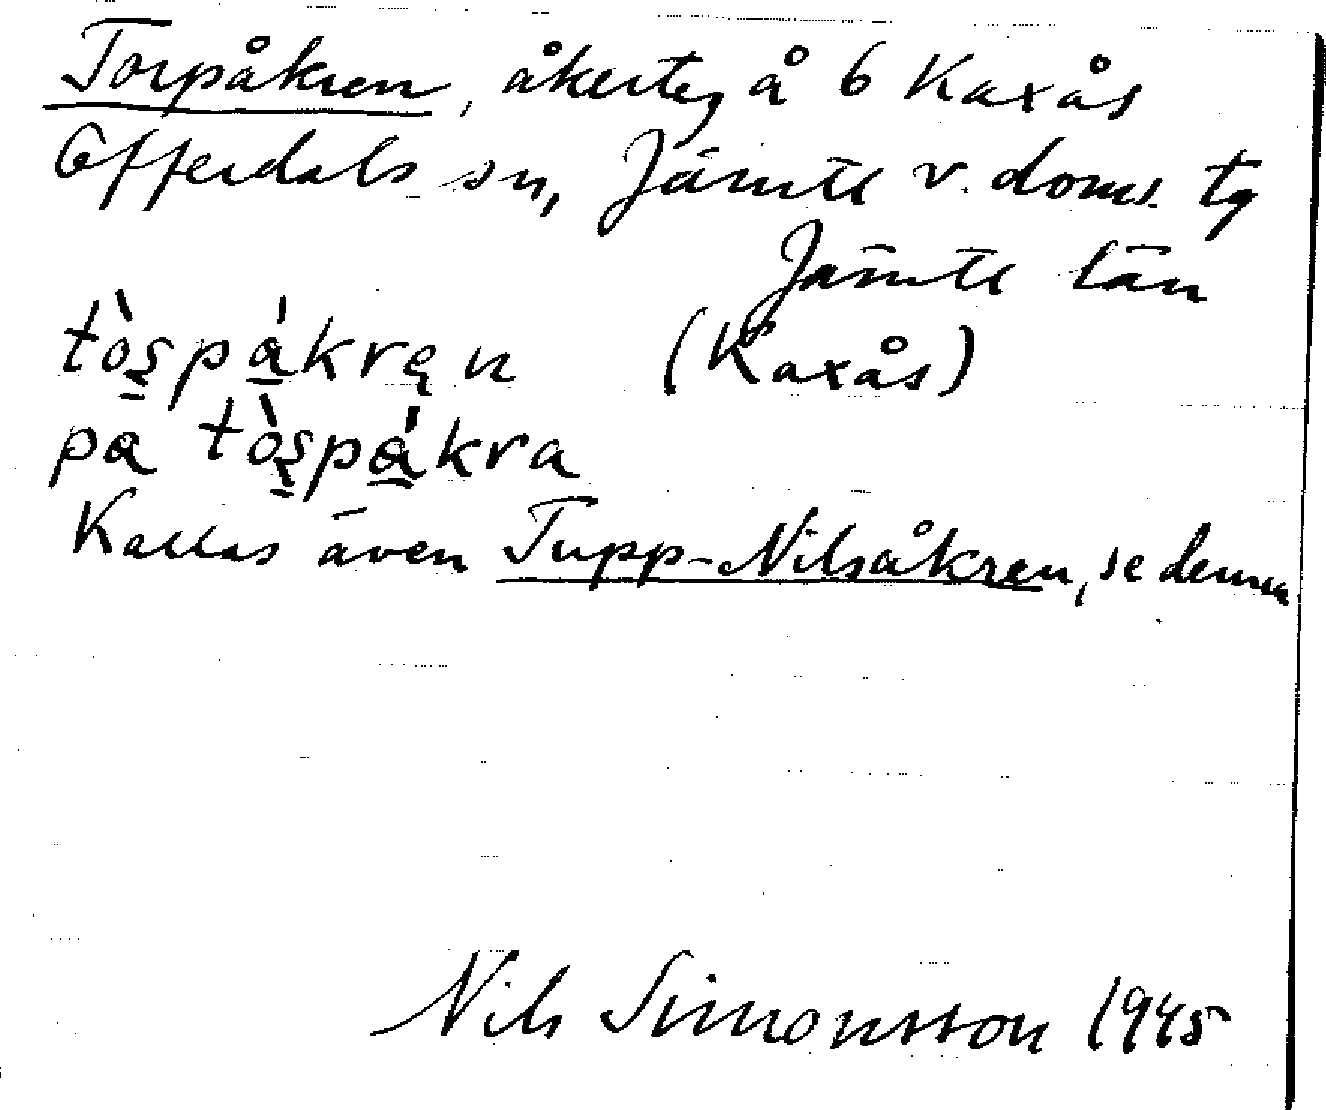 Torpåkren, åkerteg å 6 Kaxås
Offerdals sn, Jämtl v. doms. tg
Jämtl län
tò̱s̱pá̱kręn (Kaxås)
pa tò̱s̱pá̱kra
Kallas även Tupp-Nilsåkren, se denna
Nils Simonsson 1945